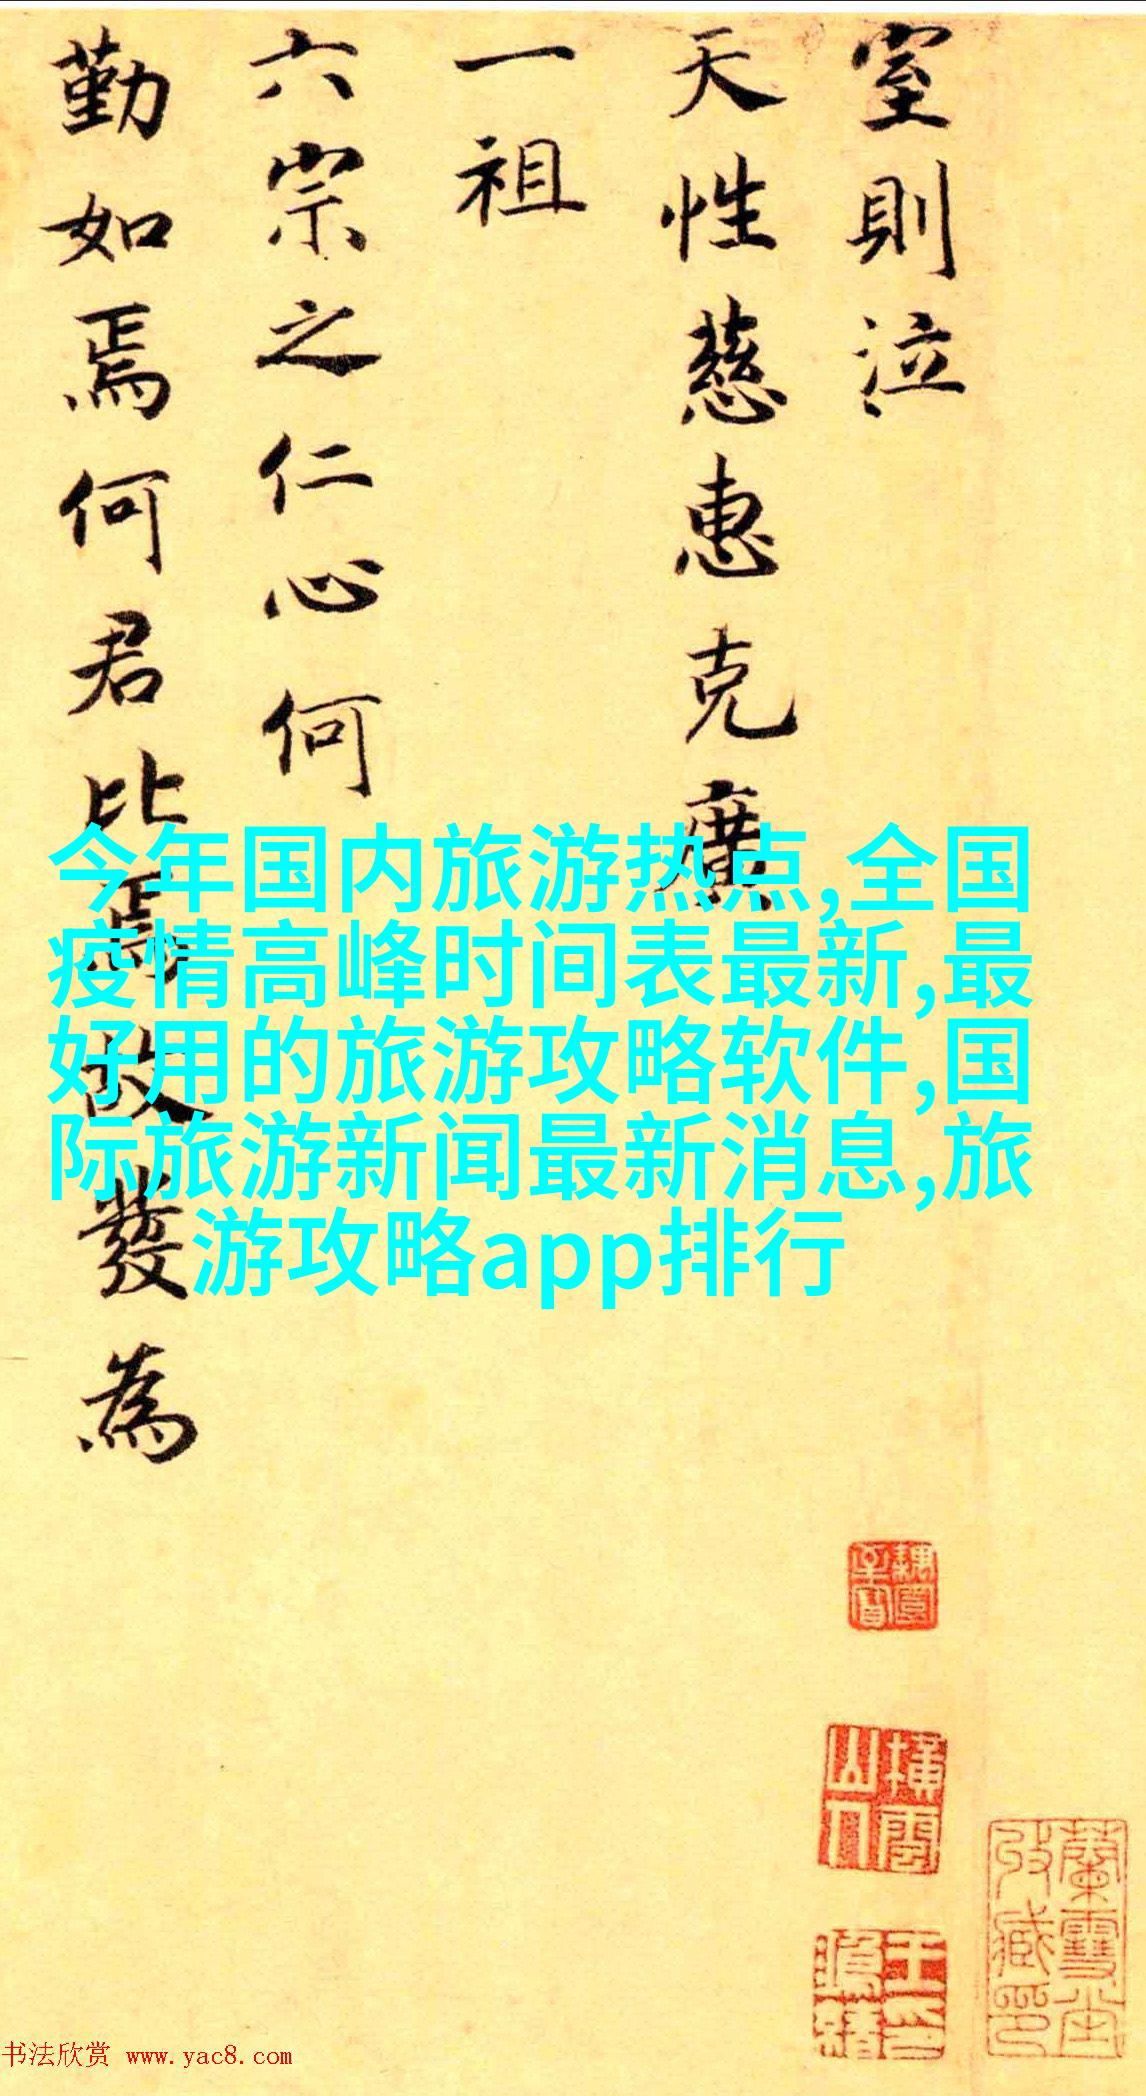 室則泣
天性慈惠克廣
一祖
六宗之仁心何
勤如焉何君比焉故發為
今年国内旅游热点,全国
疫情高峰时间表最新,最
好用的旅游攻略软件,国
际旅游新闻最新消息,旅
游攻略app排行
橫雲
山人
王印
鴻緒
蘭雪堂
收藏印
书法欣赏 www.yac8.com